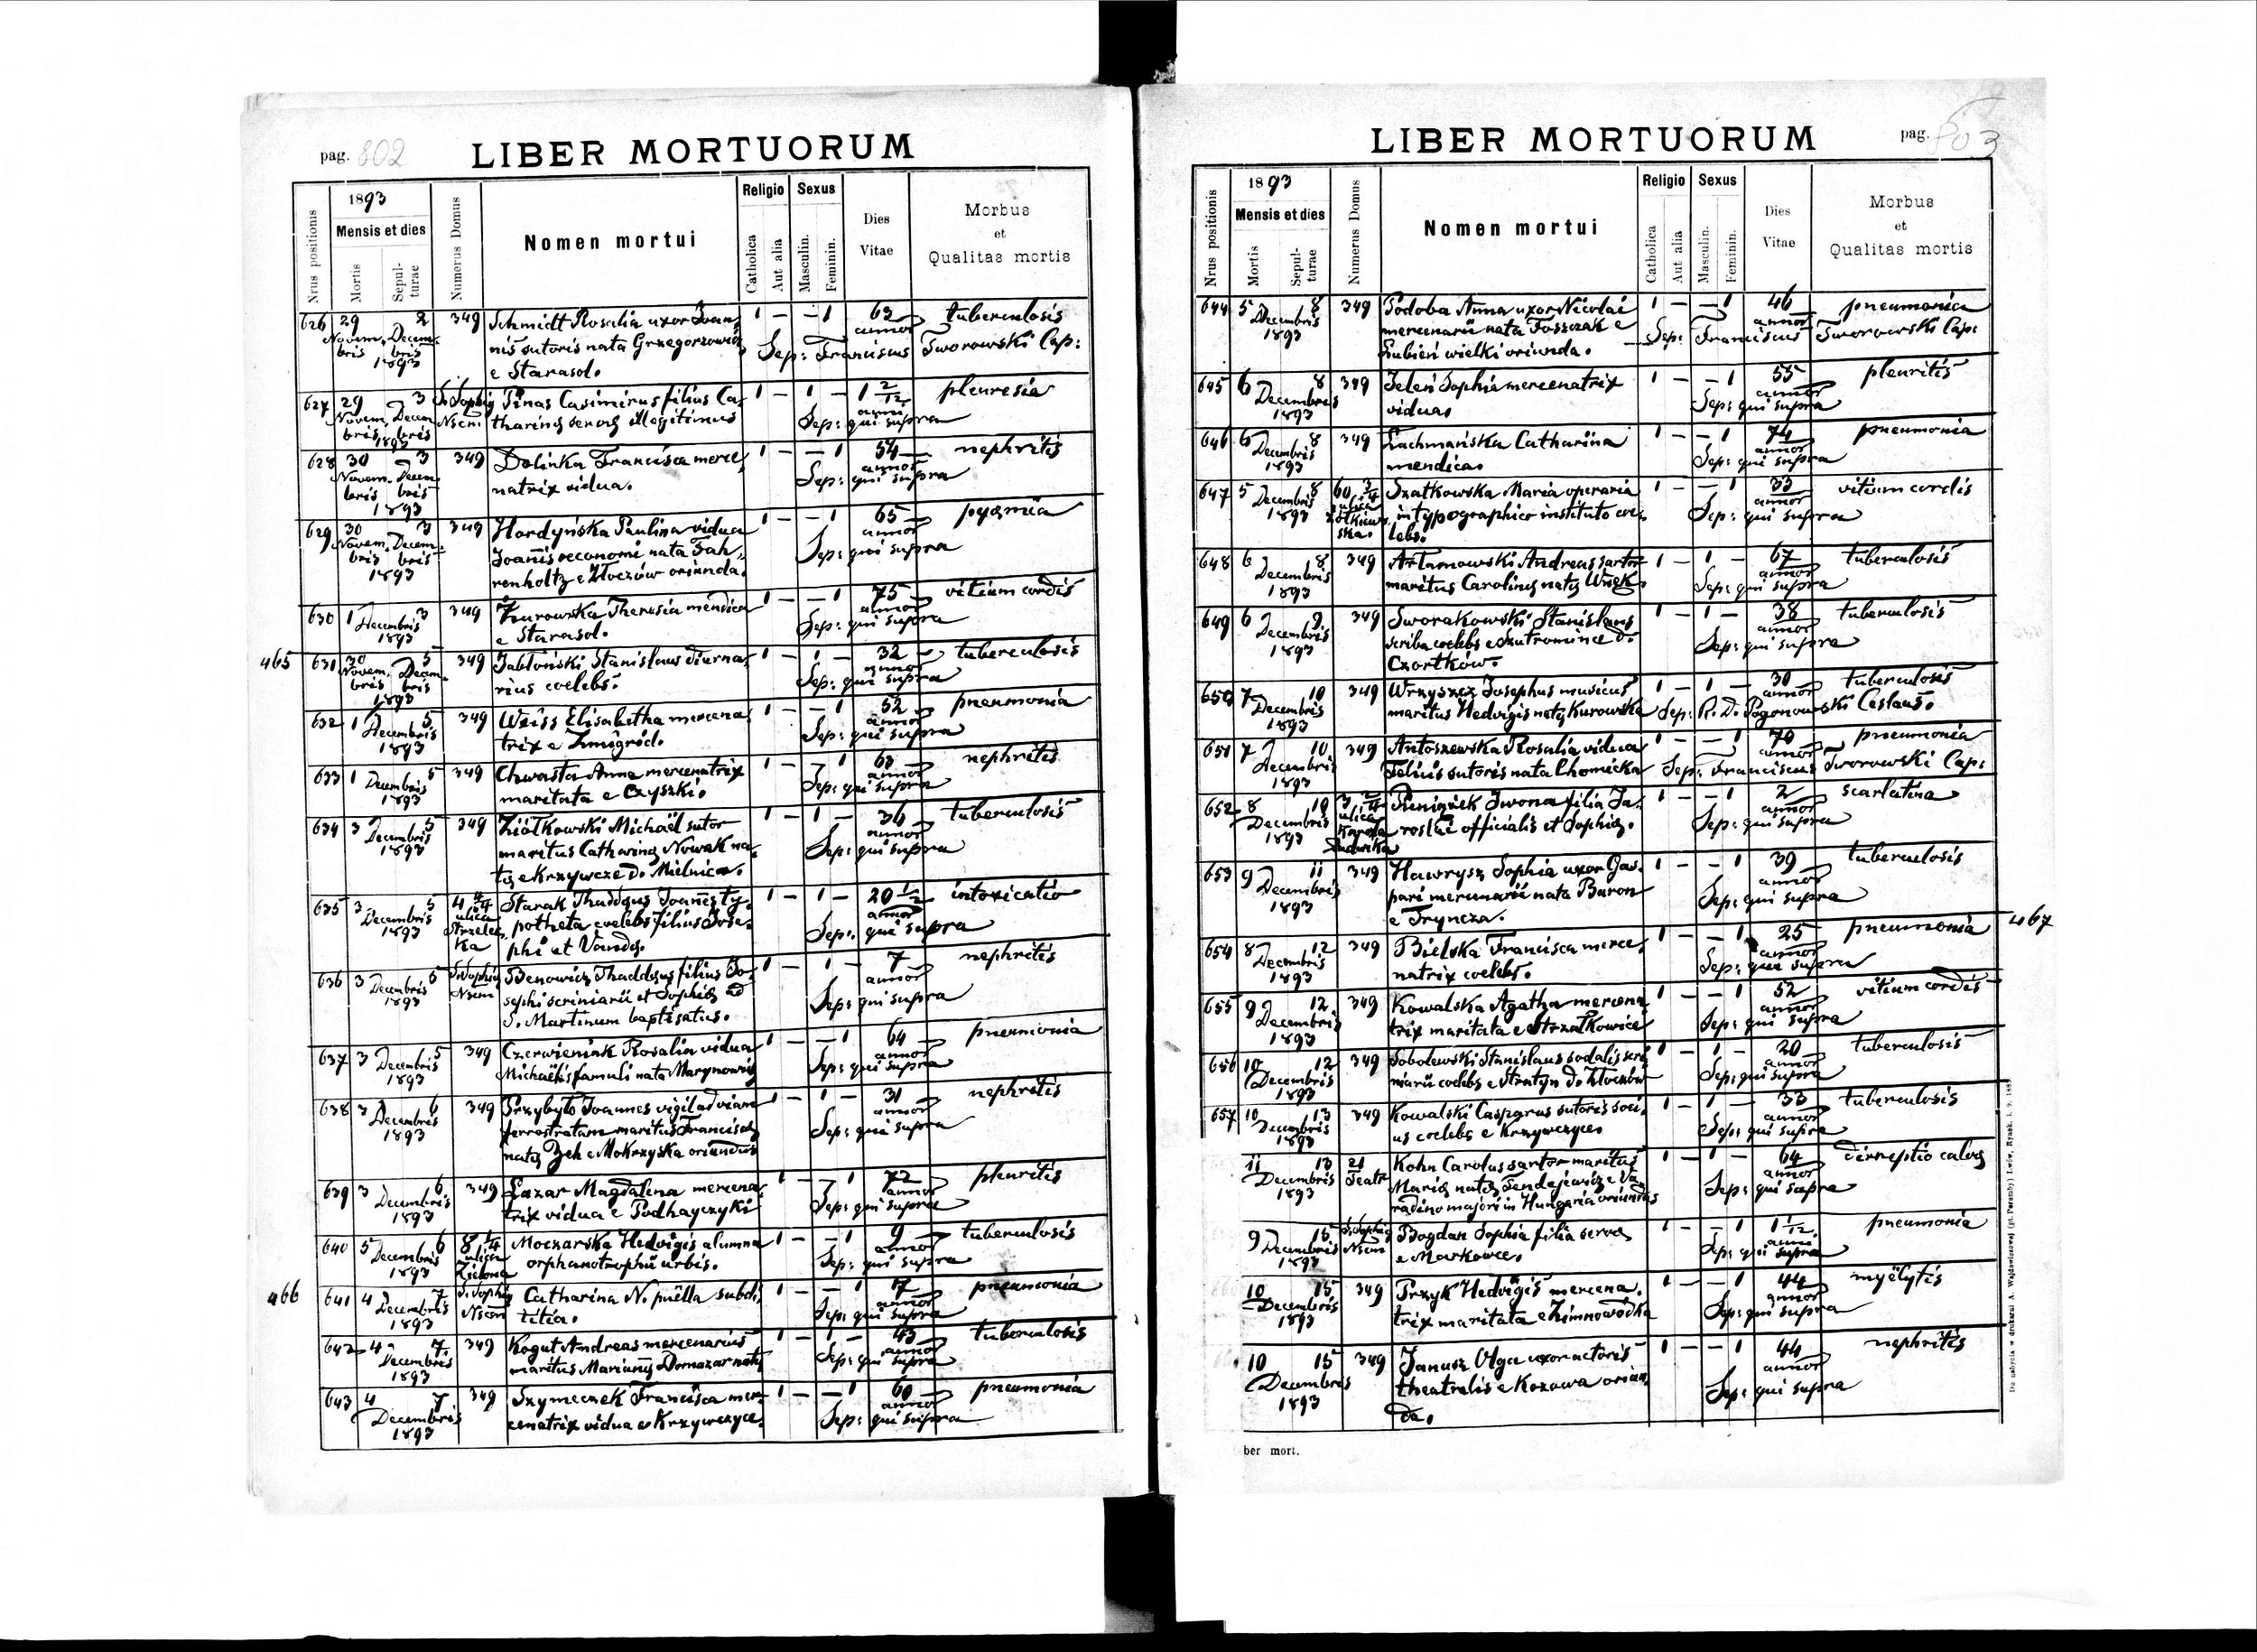 pag. 802
LIBER MORTUORUM
Nrus positionis
1893
Mensis et dies
Mortis
Sepulturae
Numerus Domus
Nomen mortui
Religio
Catholica
Aut alia
Sexus
Masculin.
Feminin.
Dies
Vitae
Morbus
et
Qualitas mortis
626 29 2 349 Schmidt Rosalia uxor Joan, 1 — — 1 63 tuberculosis
Novem. Decem. nis sutoris nata Grzegorzowicz annor
bris bris Sep: Franciscus Tworowski Cap:
1893 e Starasol.
627 29 3 S. Sophię Pinas Casimirus filius Ca, 1 — 1 — 1 2/12 pleuresia
Novem. Decem Nsem. tharinę servę illegitimus anni
bris bris Sep: qui supra
1893
628 30 3 349 Dolinka Francisca merce, 1 — — 1 54 nephritis
Novem. Decem. natrix vidua. annor
bris bris Sep: qui supra
1893
629 30 3 349 Hordyńska Paulina vidua 1 — — 1 65 pyęmia
Novem. Decem. Joannis oeconomi nata Fah, annor
bris bris renholtz e Złoczów oriunda. Sep: qui supra
1893
630 1 3 349 Żurowska Theresia mendica 1 — — 1 75 vitium cordis
Decembris e Starasol. annor
1893 Sep: qui supra
465 631 30 5 349 Jabłoński Stanislaus diurna, 1 — 1 — 32 tuberculosis
Novem. Decem. rius coelebs. annor
bris bris Sep: qui supra
1893
632 1 5 349 Weiss Elisabetha mercena, 1 — — 1 52 pneumonia
Decembris trix e Żmigród. annor
1893 Sep: qui supra
633 1 5 349 Chwasta Anna mercenatrix 1 — — 1 63 nephritis
Decembris maritata e Czyszki. annor
1893 Sep: qui supra
634 3 5 349 Ziółkowski Michaël sutor 1 — 1 — 36 tuberculosis
Decembris maritus Catharinę Nowak na, annor
1893 tę e Krzywcze D. Mielnica. Sep: qui supra
635 3 5 4 Starak Thaddęus Joannes ty, 1 — 1 — 20 1/2 intoxicatio
Decembris ulica potheta coelebs filius Jose, annor
1893 Strzelec, phi et Vandę. Sep: qui supra
ka
636 3 5 S. Sophię Benowicz Thaddęus filius Jo, 1 — 1 — 7 nephritis
Decembris Nsem sephi scriniarii et Sophię ad annor
1893 S. Martinum baptisatus. Sep: qui supra
637 3 5 349 Czerwieniak Rosalia vidua 1 — — 1 64 pneumonia
Decembris Michaëlis famuli nata Marynowicz annor
1893 Sep: qui supra
638 3 6 349 Przybyło Joannes vigil ad viam 1 — 1 — 31 nephritis
Decembris ferrostratam maritus Franciscę annor
1893 natę Zeh e Mokrzyska oriundus Sep: qui supra
639 3 6 349 Łazar Magdalena mercena, 1 — — 1 72 pleuritis
Decembris trix vidua e Podhayczyki annor
1893 Sep: qui supra
640 5 6 8 1/4 Moczarska Hedvigis alumna 1 — — 1 9 tuberculosis
Decembris ulica orphanotrophii urbis. annor
1893 Zielona Sep: qui supra
466 641 4 7 S. Sophię Catharina N. puella subdi, 1 — — 1 7 pneumonia
Decembris Nsem titia. annor
1893 Sep: qui supra
642 4 7 349 Kogut Andreas mercenarius 1 — 1 — 43 tuberculosis
Decembris maritus Mariannę Domazar natę annor
1893 Sep: qui supra
643 4 7 349 Szymeczek Francisca mer- 1 — — 1 60 pneumonia
Decembris cenatrix vidua e Krzywczyce. annor
1893 Sep: qui supra
pag. 803
LIBER MORTUORUM
Nrus positionis
1893
Mensis et dies
Mortis
Sepulturae
Numerus Domus
Nomen mortui
Religio
Catholica
Aut alia
Sexus
Masculin.
Feminin.
Dies
Vitae
Morbus
et
Qualitas mortis
644 5 8 349 Podoba Anna uxor Nicolai 1 — — 1 46 pneumonia
Decembris mercenarii nata Toszczak e annor
1893 Lubień wielki oriunda. Sep: Franciscus Tworowski Cap:
645 6 8 349 Jeleń Sophia mercenatrix 1 — — 1 55 pleuritis
Decembris vidua. annor
1893 Sep: qui supra
646 6 8 349 Lachmańska Catharina 1 — — 1 74 pneumonia
Decembris mendica. annor
1893 Sep: qui supra
647 5 8 60 3/4 Szatkowska Maria operaria 1 — — 1 33 vitium cordis
Decembris ulica in typographico instituto coe, annor
1893 Żółkiew, lebs. Sep: qui supra
ska.
648 6 8 349 Artamowski Andreas sartor 1 — 1 — 67 tuberculosis
Decembris maritus Carolinę natę Wnęk. annor
1893 Sep: qui supra
649 6 9 349 Sworakowski Stanislaus 1 — 1 — 38 tuberculosis
Decembris scriba coelebs e Szutromince D. annor
1893 Czortków. Sep: qui supra
650 7 10 349 Wrzyszcz Josephus musicus 1 — 1 — 30 tuberculosis
Decembris maritus Hedvigis natę Kurowska annor
1893 Sep: R. D. Pogonowski Ceslaus.
651 7 10 349 Antoszewska Rosalia vidua 1 — — 1 70 pneumonia
Decembris Felicis sutoris nata Chomicka annor
1893 Sep: Franciscus Tworowski Cap:
652 8 10 3 2/4 Pieniążek Iwona filia Ja, 1 — — 1 2 scarlatina
Decembris ulica roslai officialis et Sophię. annor
1893 Karola Sep: qui supra
Ludwika
653 9 11 349 Hawrysz Sophia uxor Gas, 1 — — 1 39 tuberculosis
Decembris pari mercenarii nata Baron annor
1893 e Tryncza. Sep: qui supra
654 8 12 349 Bielska Francisca merce, 1 — — 1 25 pneumonia 467
Decembris natrix coelebs. annor
1893 Sep: qui supra
655 9 12 349 Kowalska Agatha mercena, 1 — — 1 52 vitium cordis
Decembris trix maritata e Strzałkowice annor
1893 Sep: qui supra
656 10 12 349 Sobolewski Stanislaus sodalis scri, 1 — 1 — 20 tuberculosis
Decembris niarii coelebs e Stratyn D. Złoczów annor
1893 Sep: qui supra
657 10 13 349 Kowalski Casparus sutoris soci, 1 — 1 — 33 tuberculosis
Decembris us coelebs e Krzywczyce. annor
1893 Sep: qui supra
11 13 21 Kohn Carolus sartor maritus 1 — 1 — 64 dirreptio calvę
Decembris Teatr Marię natę Tendejewicz e Va, annor
1893 radino majori in Hungaria oriundus Sep: qui supra
9 15 S. Sophię Bogdan Sophia filia servę 1 — — 1 1 1/12 pneumonia
Decembris Nsem e Markowce. anni
1893 Sep: qui supra
10 15 349 Przyk Hedvigis mercena, 1 — — 1 44 myëlytis
Decembris trix maritata e Zimnowódka annor
1893 Sep: qui supra
10 15 349 Janusz Olga uxor actoris 1 — — 1 44 nephritis
Decembris theatralis e Kozowa oriun, annor
1893 da. Sep: qui supra
ber mort.